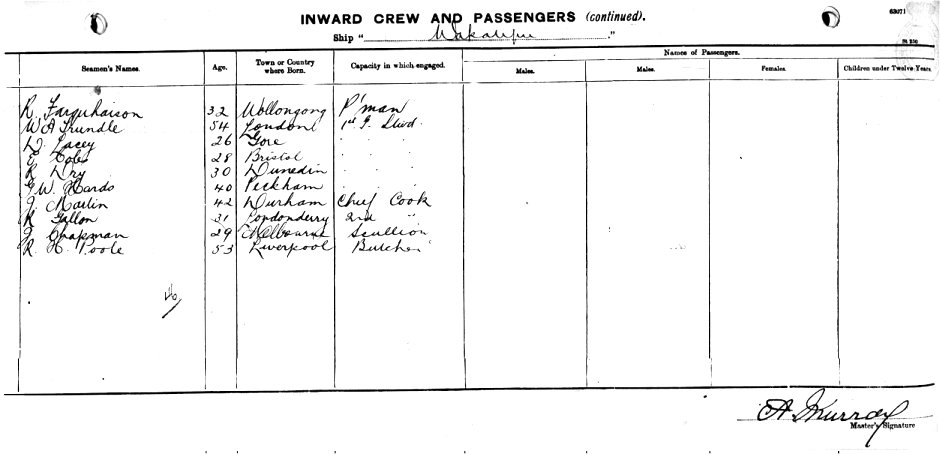 63071
INWARD CREW AND PASSENGERS (continued).
Ship " Wakatipu "
Seamen's Names. Age. Town or Country where Born. Capacity in which engaged. Names of Passengers.
Males. Males. Females. Children under Twelve Years
R. Farquharson 32 Wollongong P'man
W A Trundle 54 London 1st G. Stwd.
D. Lacey 26 Gore
E Coles 28 Bristol
R Dry 30 Dunedin
G W. Hards 40 Peckham
J. Martin 42 Durham Chief Cook
R Gallon 31 Londonderry 2nd "
J Chapman 29 Melbourne Scullion
R. H. Poole 53 Liverpool Butcher
A. Murray
Master's Signature